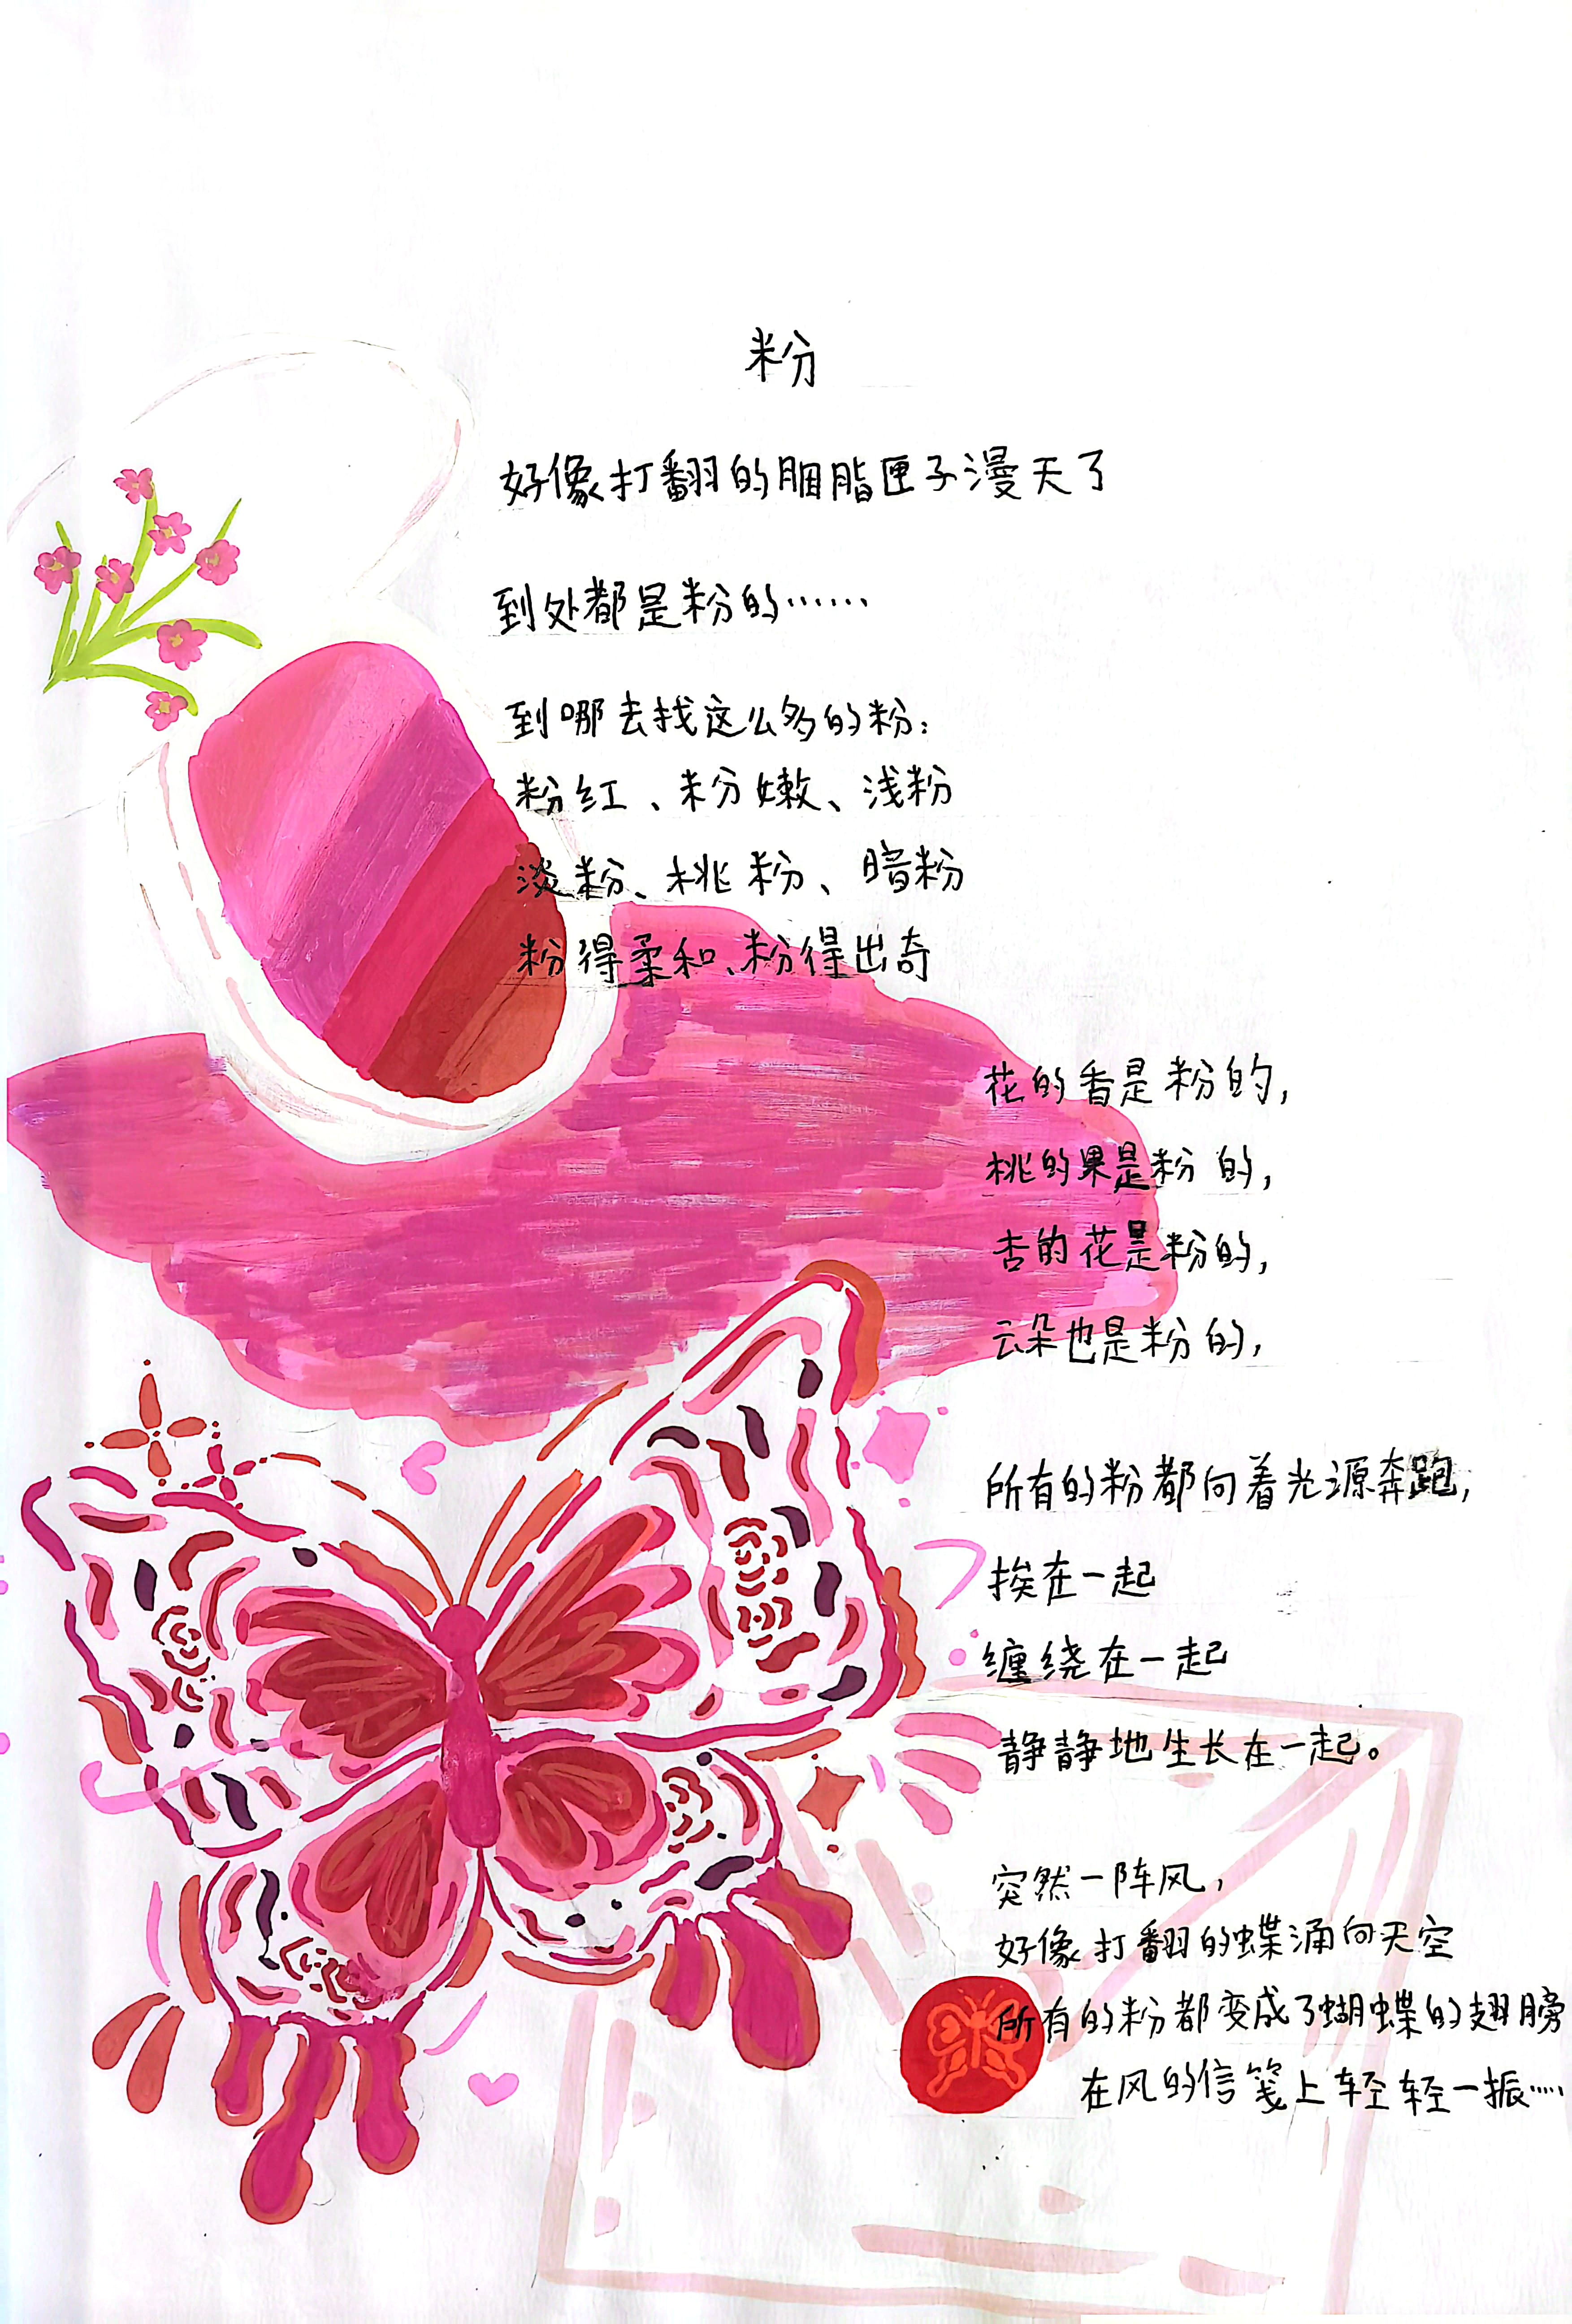 粉
好像打翻的胭脂匣子漫天了
到处都是粉的……
到哪去找这么多的粉：
粉红、粉嫩、浅粉
淡粉、桃粉、暗粉
粉得柔和、粉得出奇
花的香是粉的，
桃的果是粉的，
杏的花是粉的，
云朵也是粉的，
所有的粉都向着光源奔跑，
挨在一起
缠绕在一起
静静地生长在一起。
突然一阵风，
好像打翻的蝶涌向天空
所有的粉都变成了蝴蝶的翅膀
在风的信笺上轻轻一振……